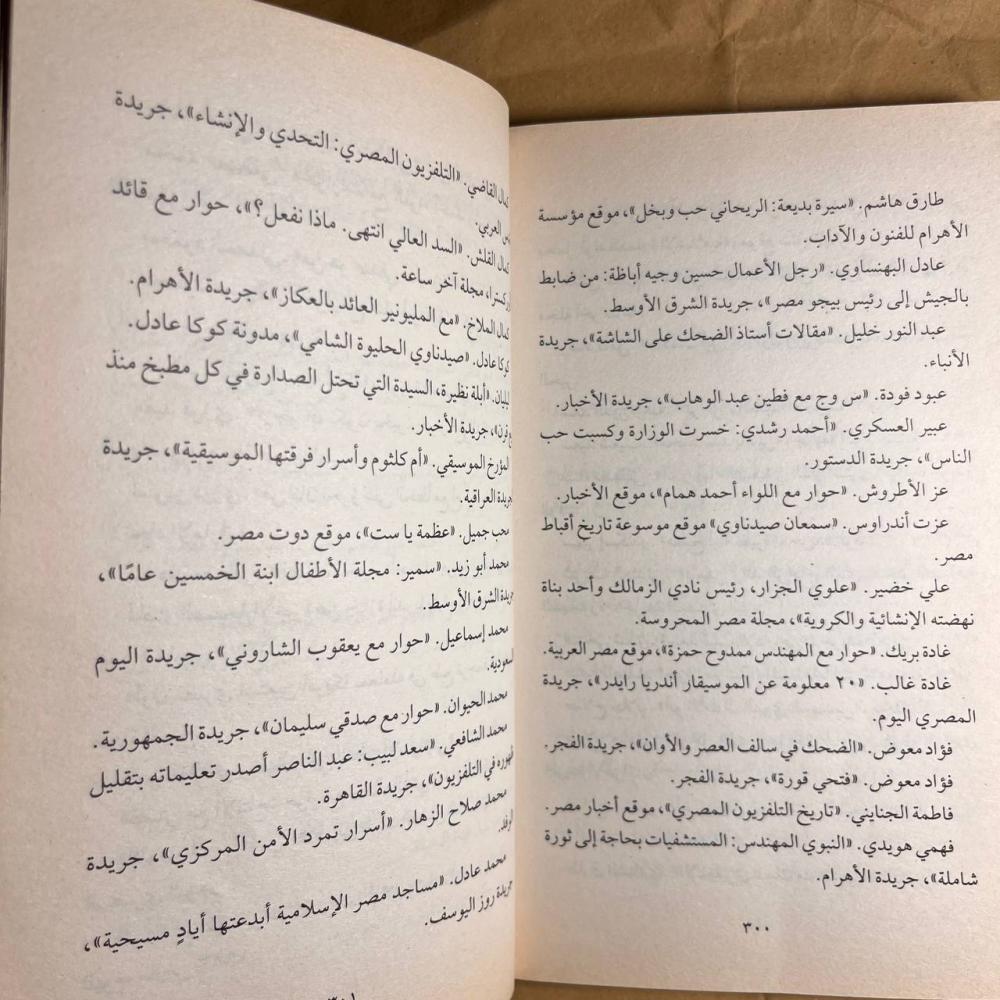 طارق هاشم. «سيرة بديعة: الريحاني حب وبخل»، موقع مؤسسة
الأهرام للفنون والآداب.
عادل البهنساوي. «رجل الأعمال حسين وجيه أباظة: من ضابط
بالجيش إلى رئيس بيجو مصر»، جريدة الشرق الأوسط.
عبد النور خليل. «مقالات أستاذ الضحك على الشاشة»، جريدة
الأنباء.
عبود فودة. «س وج مع فطين عبد الوهاب»، جريدة الأخبار.
عبير العسكري. «أحمد رشدي: خسرت الوزارة وكسبت حب
الناس»، جريدة الدستور.
عز الأطروش. «حوار مع اللواء أحمد همام»، موقع الأخبار.
عزت أندراوس. «سمعان صيدناوي» موقع موسوعة تاريخ أقباط
مصر.
علي خضير. «علوي الجزار، رئيس نادي الزمالك وأحد بناة
نهضته الإنشائية والكروية»، مجلة مصر المحروسة.
غادة بريك. «حوار مع المهندس ممدوح حمزة»، موقع مصر العربية.
غادة غالب. «٢٠ معلومة عن الموسيقار أندريا رايدر»، جريدة
المصري اليوم.
فؤاد معوض. «الضحك في سالف العصر والأوان»، جريدة الفجر.
فؤاد معوض. «فتحي قورة»، جريدة الفجر.
فاطمة الجنايني. «تاريخ التلفزيون المصري»، موقع أخبار مصر.
فهمي هويدي. «النبوي المهندس: المستشفيات بحاجة إلى ثورة
شاملة»، جريدة الأهرام.
٣٠٠
القاضي. «التلفزيون المصري: التحدي والإنشاء»، جريدة
العربي.
القلش. «السد العالي انتهى. ماذا نفعل؟»، حوار مع قائد
مجلة آخر ساعة.
الملاخ. «مع المليونير العائد بالعكاز»، جريدة الأهرام.
كوكا عادل. «صيدناوي الحليوة الشامي»، مدونة كوكا عادل.
«أبلة نظيرة، السيدة التي تحتل الصدارة في كل مطبخ منذ
جريدة الأخبار.
المؤرخ الموسيقي. «أم كلثوم وأسرار فرقتها الموسيقية»، جريدة
العراقية.
محب جميل. «عظمة يا ست»، موقع دوت مصر.
محمد أبو زيد. «سمير: مجلة الأطفال ابنة الخمسين عامًا»،
جريدة الشرق الأوسط.
محمد إسماعيل. «حوار مع يعقوب الشاروني»، جريدة اليوم
السعودية.
محمد الحيوان. «حوار مع صدقي سليمان»، جريدة الجمهورية.
محمد الشافعي. «سعد لبيب: عبد الناصر أصدر تعليماته بتقليل
ظهوره في التلفزيون»، جريدة القاهرة.
محمد صلاح الزهار. «أسرار تمرد الأمن المركزي»، جريدة
الوفد.
محمد عادل. «مساجد مصر الإسلامية أبدعتها أيادٍ مسيحية»،
جريدة روز اليوسف.
٣٠١